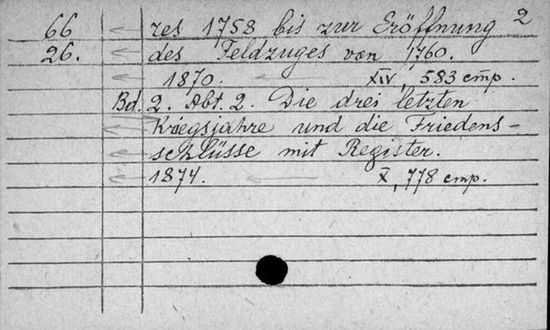 2
66 res 1758 bis zur Eröffnung
26. des Feldzuges von 1760.
1870. XIV, 583 стр.
Bd. 2. Abt. 2. Die drei letzten
Kriegsjahre und die Friedens-
schlüsse mit Register.
1874. X, 778 стр.